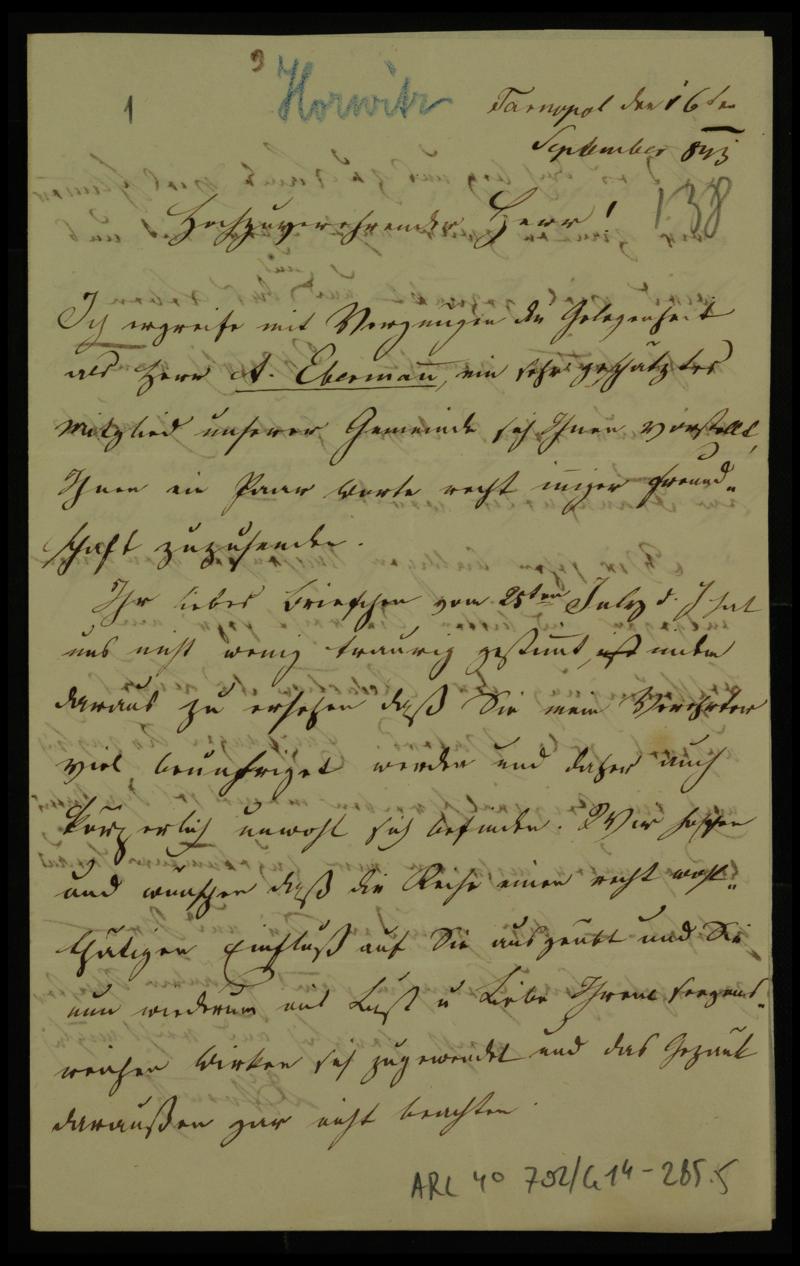 1
Horwitz
Tarnopol den 16ten
September 843
138
Hochzuverehrender Herr!
Ich ergreife mit Vergnügen die Gelegenheit
als Herr A. Eberman̄, ein sehr geschätztes
Mitglied unserer Gemeinde sich Ihnen vorstellt,
Ihnen ein Paar Worte recht in̄iger Freund-
schaft zuzusenden.
Ihr liebes Briefchen vom 25ten July d. J hat
uns nicht wenig traurig gestim̄t, indem
daraus zu ersehen daß Sie mein Verehrter
viel beunruhiget werden und daher auch
körperlich unwohl sich befinden. Wir hoffen
und wünschen daß die Reise einen recht wohl-
thätigen Einfluß auf Sie ausgeübt und Sie
nun wiederum mit Lust u Liebe Ihrem seegens-
reichen Wirken sich zugewendet und das Gezänk
daraußen gar nicht beachten.
ARC 4o 792/G14-285.5